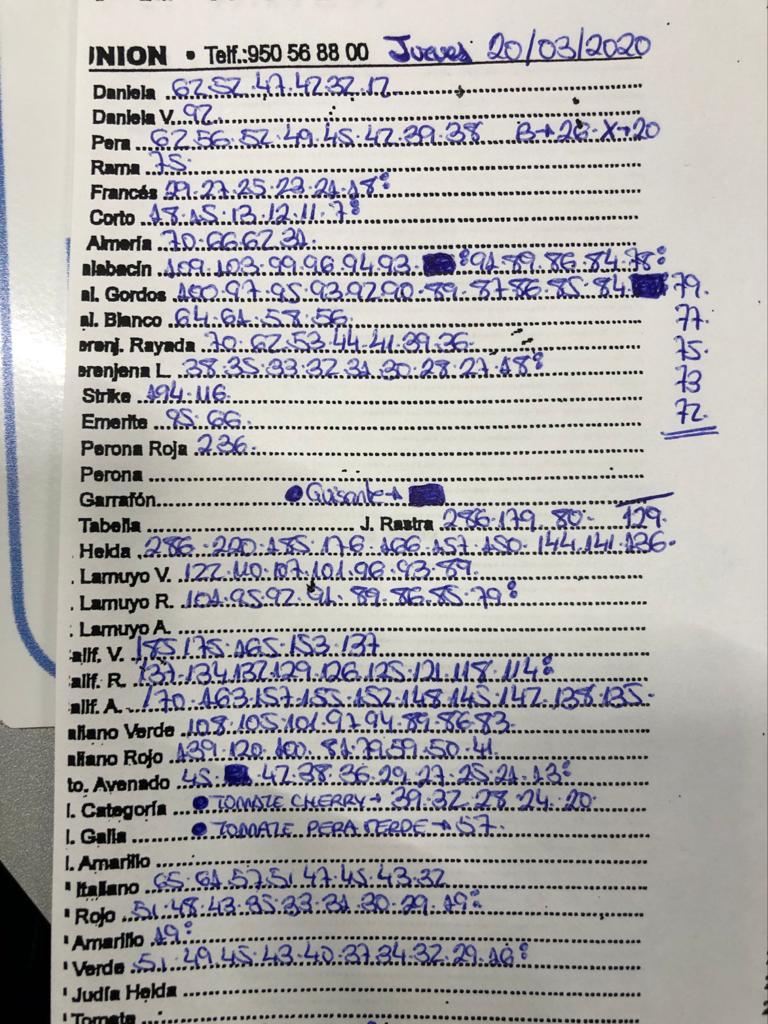 UNION • Telf.:950 56 88 00 Jueves 20/03/2020
Daniela 62.52.47.42.32.12
Daniela V. 92
Pera 62.56.52.49.45.42.39.38 B→26.X→20
Rama 75.
Francés 29.27.25.23.21.18:
Corto 18.15.13.12.11.7:
Almería 70.66.62.31.
alabacín 109.103.99.96.94.93. :91.89.86.84.78:
al. Gordos 100.97.95.93.92.90.89.87.86.85.84. 79.
77.
al. Blanco 64.61.58.56.
erenj. Rayada 70.62.53.44.41.39.36.
75.
erenjena L. 38.35.33.32.31.30.28.27.18:
73
Strike 194.116.
72.
Emerite 95.66.
Perona Roja 236.
Perona
Garrafón ●Guisante→
Tabella J. Rastra 286.179.80. 129.
Helda 286.220.185.176.166.157.150.144.141.136.
. Lamuyo V. 122.110.107.101.96.93.89.
. Lamuyo R. 101.95.92.91.89.86.85.79:
. Lamuyo A.
alif. V. 185.175.165.153.137
alif. R. 137.134.132.129.126.125.121.118.114:
alif. A. 170.163.157.155.152.148.145.142.138.135.
aliano Verde 108.105.101.97.94.89.86.83.
aliano Rojo 139.120.100.81.79.59.50.41.
to. Avenado 45. 42.38.36.29.27.25.21.13:
l. Categoría ●TOMATE CHERRY→39.32.28.24.20.
l. Galia ●TOMATE PERA VERDE→57.
l. Amarillo
" Italiano 65.61.57.51.47.45.43.32
" Rojo 51.48.43.35.33.31.30.29.19:
' Amarillo 19:
' Verde 51.49.45.43.40.37.34.32.29.16:
' Judía Helda
' Tomate